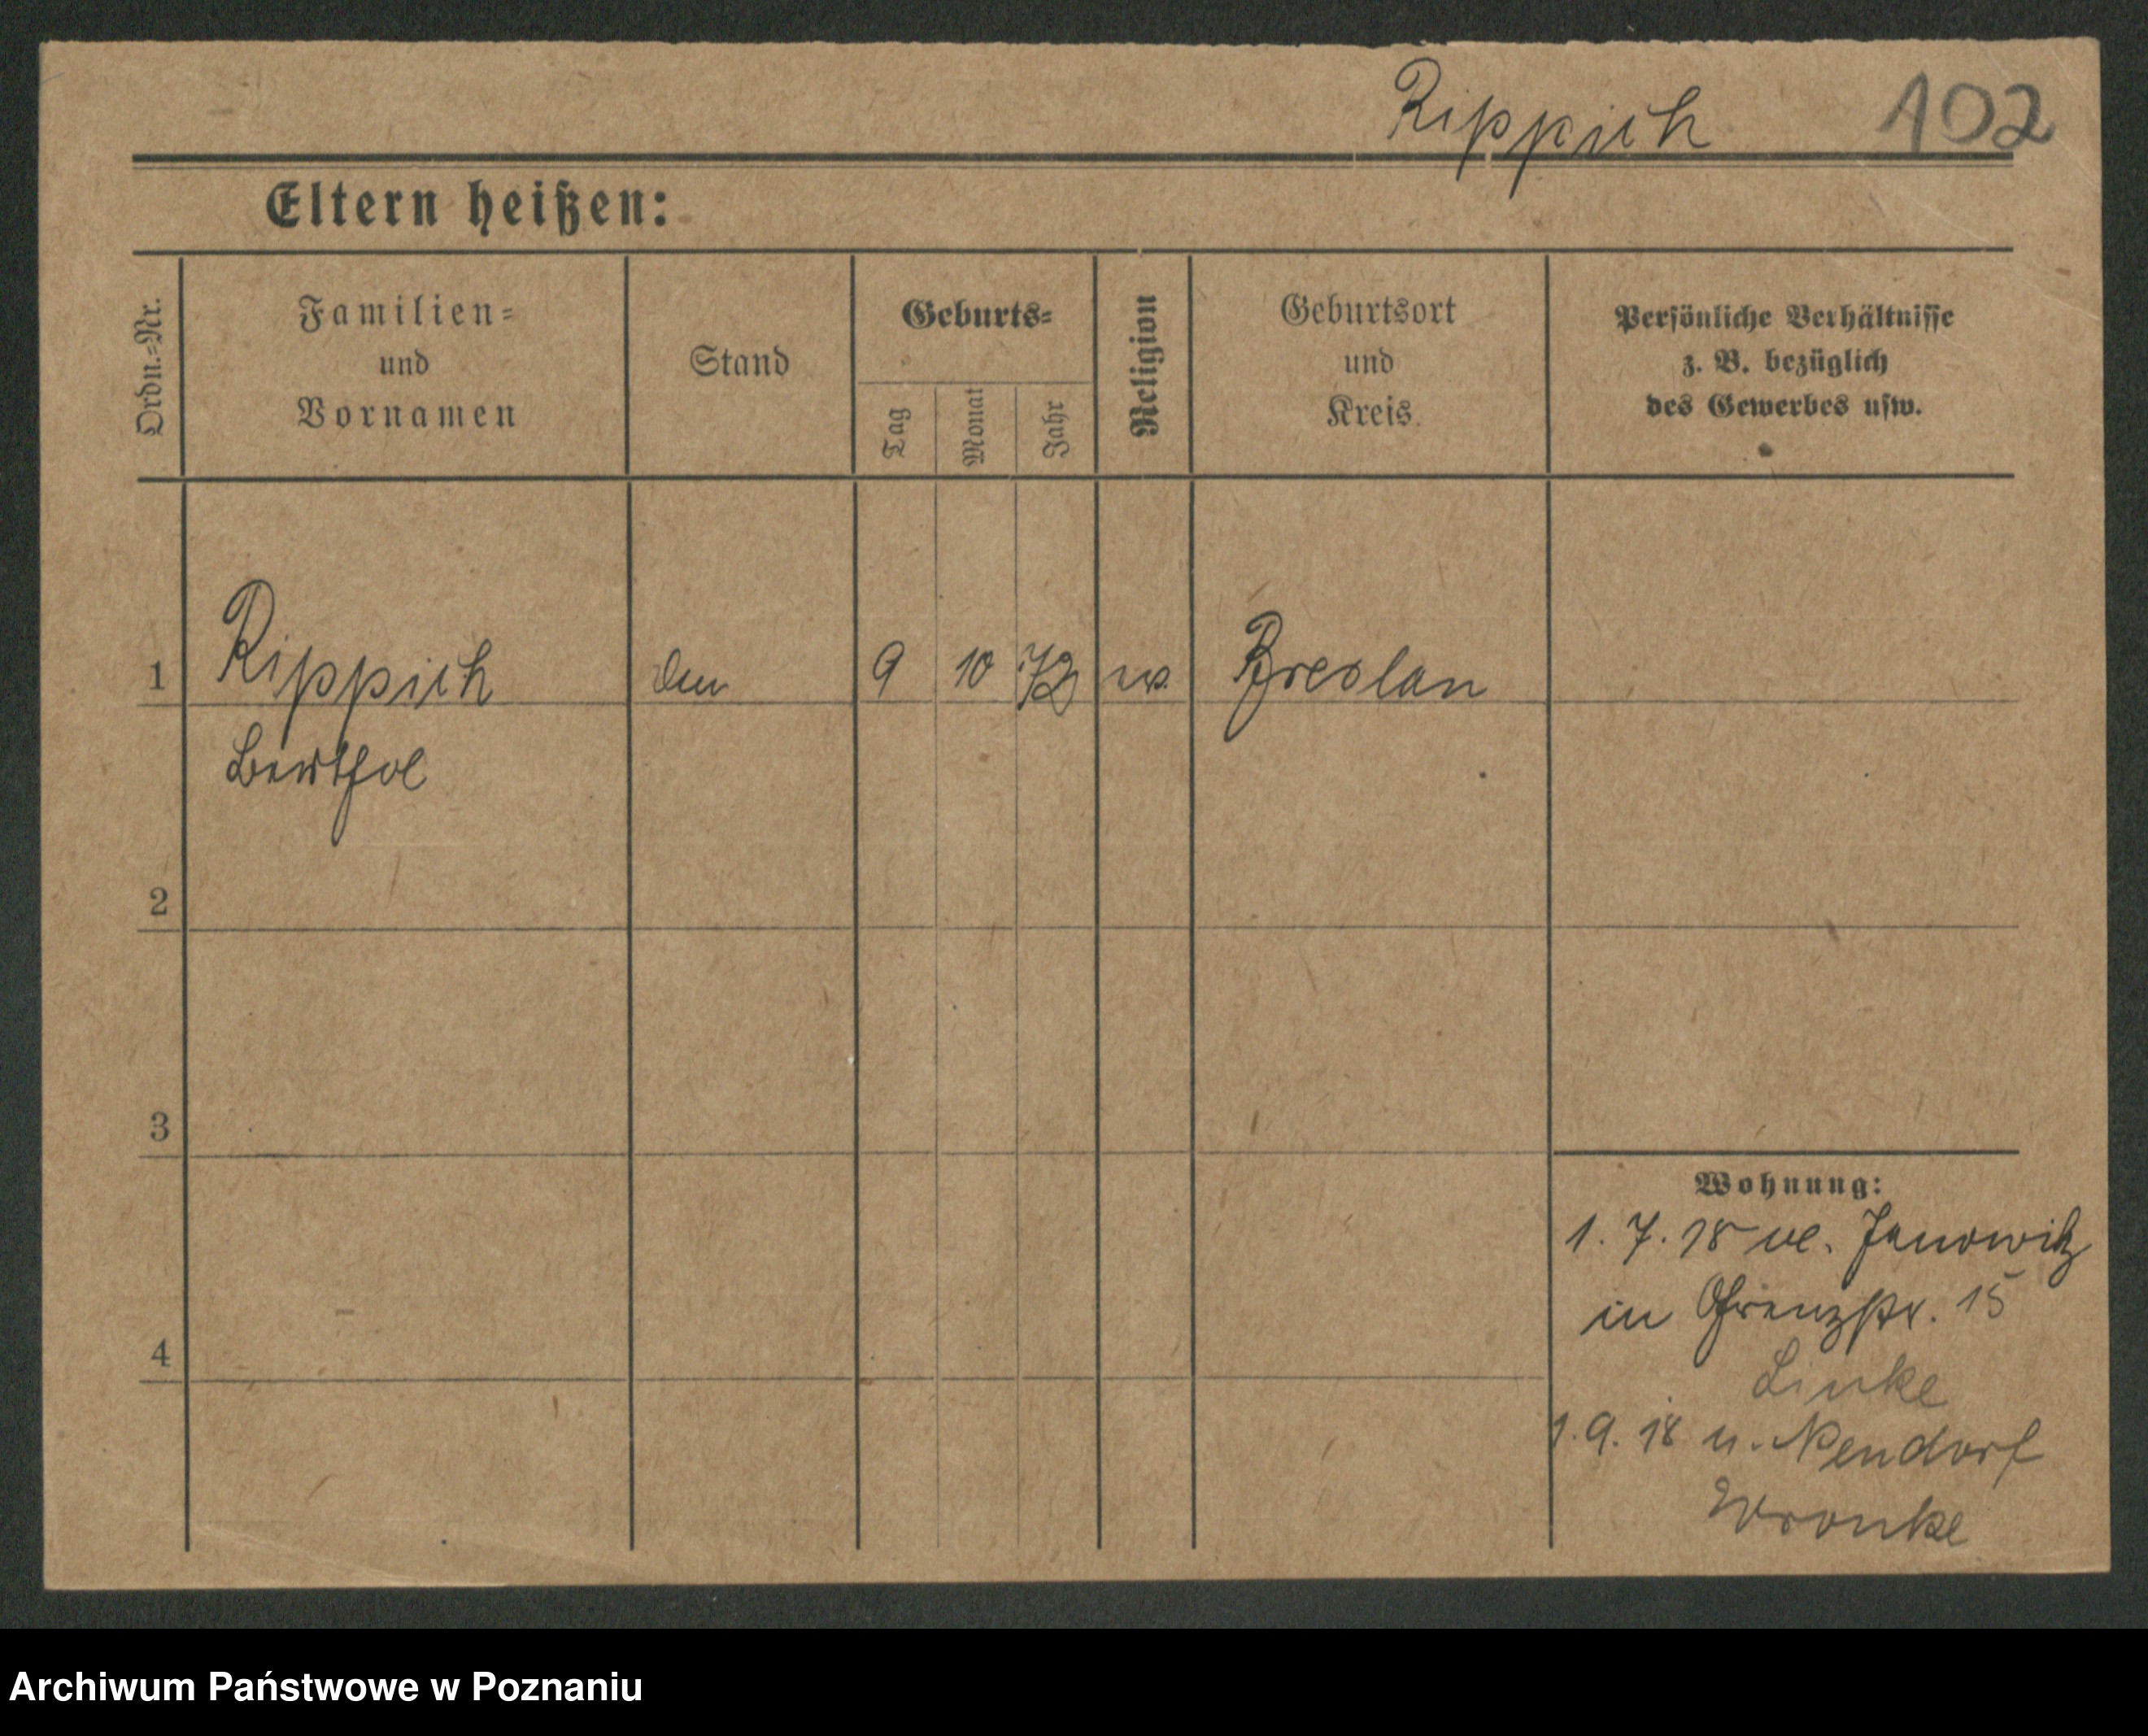 Rippich 102
Eltern heißen:
Ordn.=Nr.
Familien=
und
Vornamen
Stand
Geburts=
Tag
Monat
Jahr
Religion
Geburtsort
und
Kreis
Persönliche Verhältnisse
z. B. bezüglich
des Gewerbes usw.
1 Rippich 9 10 72 Breslau
2
3
4
Wohnung:
1. 7. 18 Janowitz
in Grenzstr. 15
Linke
1. 9. 18 n. Neudorf
Wronke
Archiwum Państwowe w Poznaniu